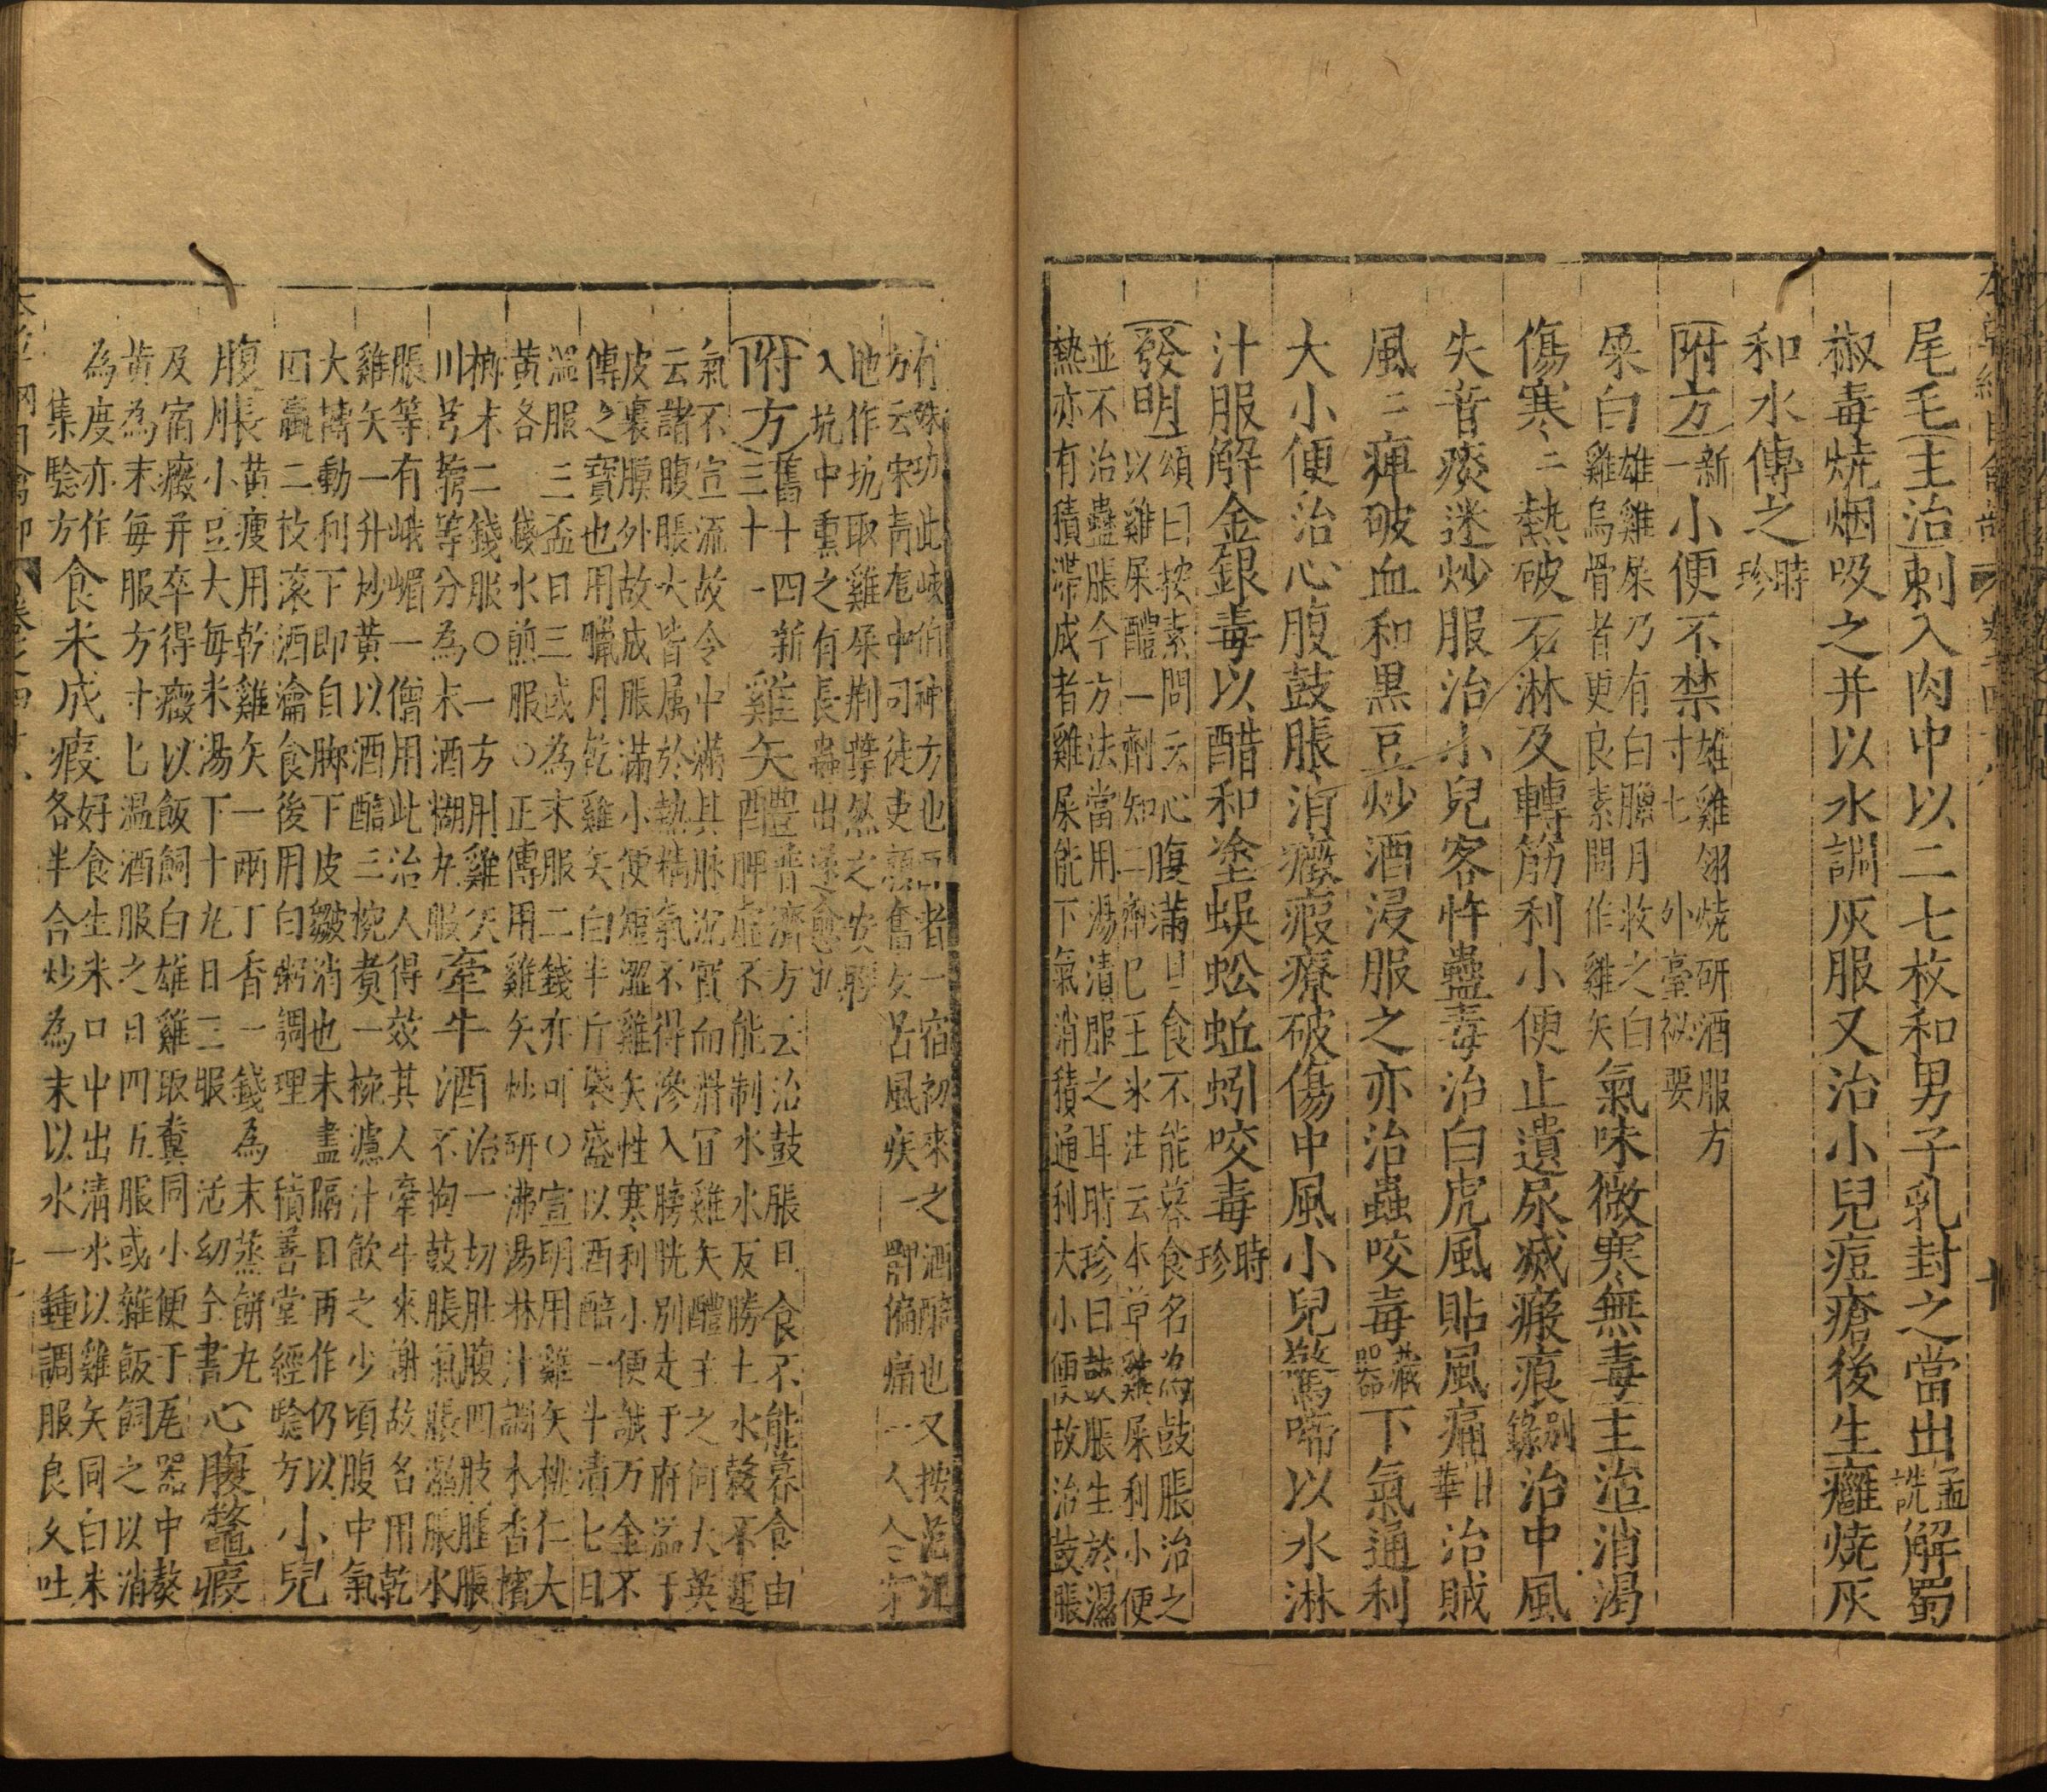 尾毛主治刺入肉中以二七枚和男子乳封之當出孟詵解蜀
椒毒燒烟吸之并以水調灰服又治小兒痘瘡後生癰燒灰
和水傅之時珍
附方新一小便不禁雄雞翎燒研酒服方寸匕外臺秘要
屎白雄雞屎乃有白臘月收之白雞烏骨者更良素問作雞矢氣味微寒無毒主治消渴
傷寒寒熱破石淋及轉筋利小便止遺尿滅瘢痕別錄治中風
失音痰迷炒服治小兒客忤蠱毒治白虎風貼風痛日華治賊
風風痺破血和黑豆炒酒浸服之亦治蟲咬毒藏器下氣通利
大小便治心腹鼓脹消癥瘕療破傷中風小兒驚啼以水淋
汁服解金銀毒以醋和塗蜈蚣蚯蚓咬毒時珍
發明頌曰按素問云心腹滿旦食不能暮食名為鼓脹治之
以雞屎醴一劑知二劑已王氷注云本草雞屎利小便
並不治蠱脹今方法當用湯漬服之耳時珍曰鼓脹生於濕
熱亦有積滯成者雞屎能下氣消積通利大小便故治鼓脹
有殊功此岐伯神方也醴者一宿初來之酒醅也又按范汪
方云宋青龍中司徒吏顏奮女苦風疾一髀偏痛一人令穿
地作坑取雞屎荊葉然之安脛
入坑中熏之有長蟲出遂愈也
附方舊十四新三十一雞矢醴普濟方云治鼓脹旦食不能暮食由
脾虛不能制水水反勝土水穀不運
氣不宣流故令中滿其脉沉實而滑宜雞矢醴主之何大英
云諸腹脹大皆属於熱精氣不得滲入膀胱別走于府溢于
皮裏膜外故成脹滿小便短澀雞矢性寒利小便誠万金不
傳之寶也用臘月乾雞矢白半斤袋盛以酒醅一斗漬七日
溫服三盃日三或為末服二錢亦可〇宣明用雞矢桃仁大
黃各一錢水煎服〇正傳用雞矢炒研沸湯淋汁調木香檳
榔末二錢服〇一方用雞矢
川芎等分為末酒糊丸服牽牛酒治一切肚腹四肢腫脹
不拘鼓脹氣脹濕脹水
脹等有峨嵋一僧用此治人得效其人牽牛來謝故名用乾
雞矢一升炒黃以酒醅三椀煑一椀濾汁飲之少頃腹中氣
大轉動利下即自脚下皮皺消也未盡隔日再作仍以
田蠃二枚滾酒瀹食後用白粥調理積善堂經驗方小兒
腹脹黃瘦用乾雞矢一兩丁香一錢為末蒸餅丸
小豆大每米湯下十丸日三服活幼全書心腹鱉瘕
及宿癥并卒得癥以飯飼白雄雞取糞同小便于瓦器中熬
黃為末每服方寸匕溫酒服之日四五服或雜飯飼之以消
為度亦作
集驗方食米成瘕好食生米口中出清水以雞矢同白米
各半合炒為末以水一鍾調服良久吐